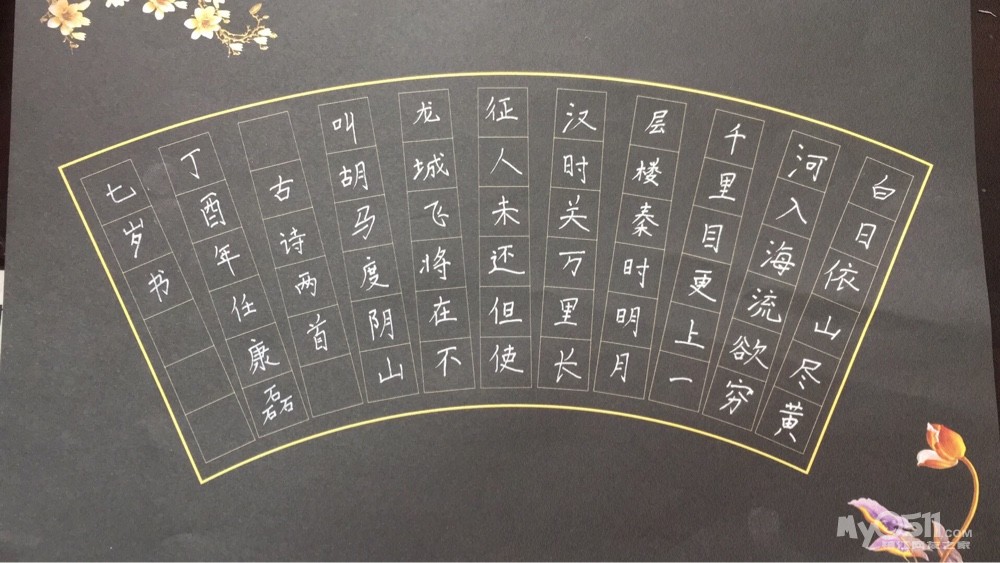 白日依山尽黄
河入海流欲穷
千里目更上一
层楼秦时明月
汉时关万里长
征人未还但使
龙城飞将在不
叫胡马度阴山
古诗两首
丁酉年任康磊
七岁书
My0511.COM